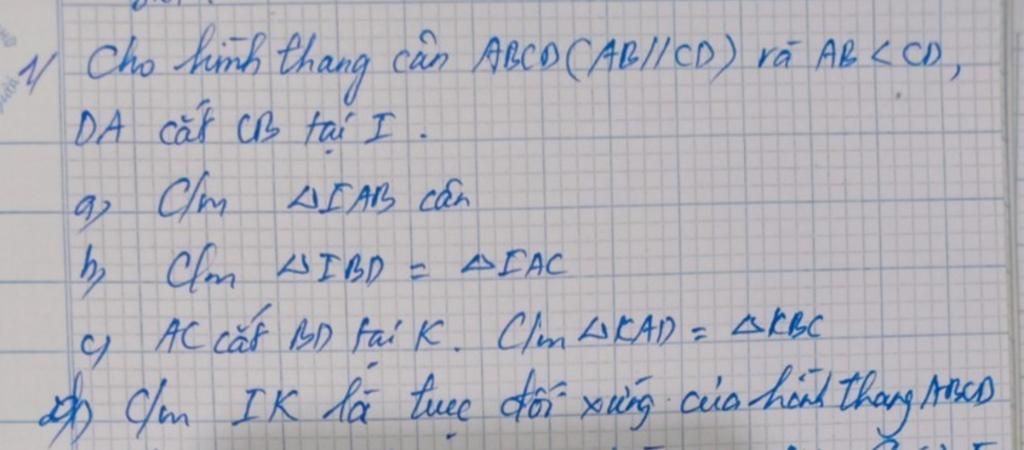 1/ Cho hình thang cân ABCD (AB//CD) và AB < CD,
DA cắt CB tại I.
a) C/m ΔIAB cân
b) C/m ΔIBD = ΔIAC
c) AC cắt BD tại K. C/m ΔKAD = ΔKBC
d) C/m IK là trục đối xứng của hình thang ABCD